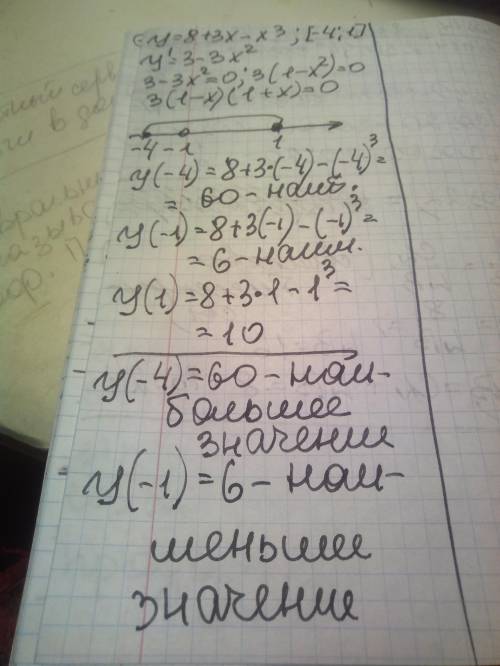 y=8+3x-x3; [-4;1]
y'=3-3x²
3-3x²=0; 3(1-x²)=0
3(1-x)(1+x)=0
-4 -1 1
y(-4)=8+3·(-4)-(-4)³=
= 60-наиб.
y(-1)=8+3(-1)-(-1)³=
=6-наим.
y(1)=8+3·1-1³=
=10
y(-4)=60-наи-
большее
значение
y(-1)=6-наи-
меньшее
значение